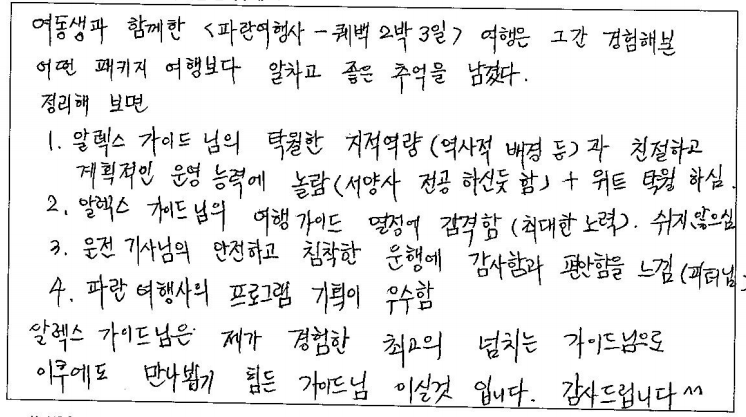 여동생과 함께한 <파란여행사 - 퀘백 2박 3일> 여행은 그간 경험해본
어떤 패키지 여행보다 알차고 좋은 추억을 남겼다.
정리해 보면
1. 알렉스 가이드 님의 탁월한 지적역량 (역사적 배경 등) 과 친절하고
계획적인 운영 능력에 놀람 (서양사 전공 하신듯 함) + 위트 탁월 하심.
2. 알렉스 가이드님의 여행가이드 열정에 감격함 (최대한 노력). 쉬지않으심
3. 운전 기사님의 안전하고 침착한 운행에 감사함과 편안함을 느낌 (피터님)
4. 파란 여행사의 프로그램 기획이 우수함
알렉스 가이드님은 제가 경험한 최고의 넘치는 가이드님으로
이후에도 만나뵙기 힘든 가이드님 이실것 입니다. 감사드립니다 ^^